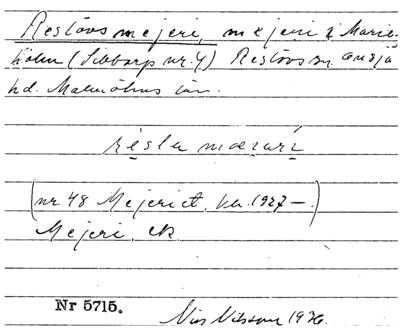 Reslövs mejeri, mejeri i Marie-
holm (Sibbarp nr 4) Reslövs sn Onsjö
hd. Malmöhus län.
(nr 48 Mejeriet, ka. 1927 —)
Mejeri, ek
Nr 5715.
Nils Nilsson 1936.